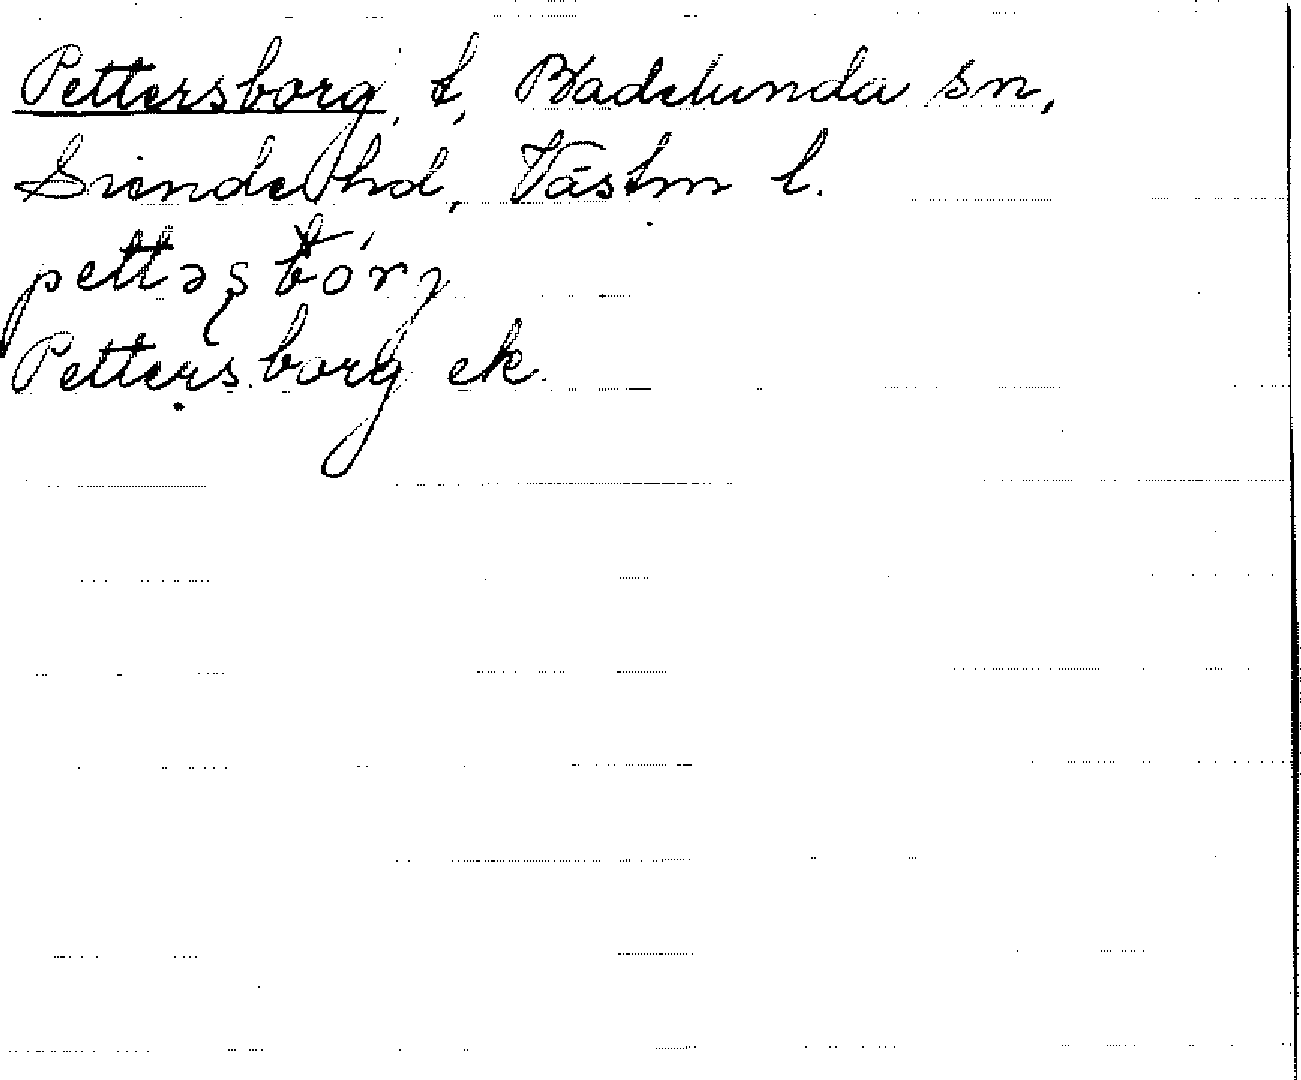 Pettersborg, t, Badelunda sn,
Siende hd, Västm l.
pettəʂbórj
Pettersborg ek.